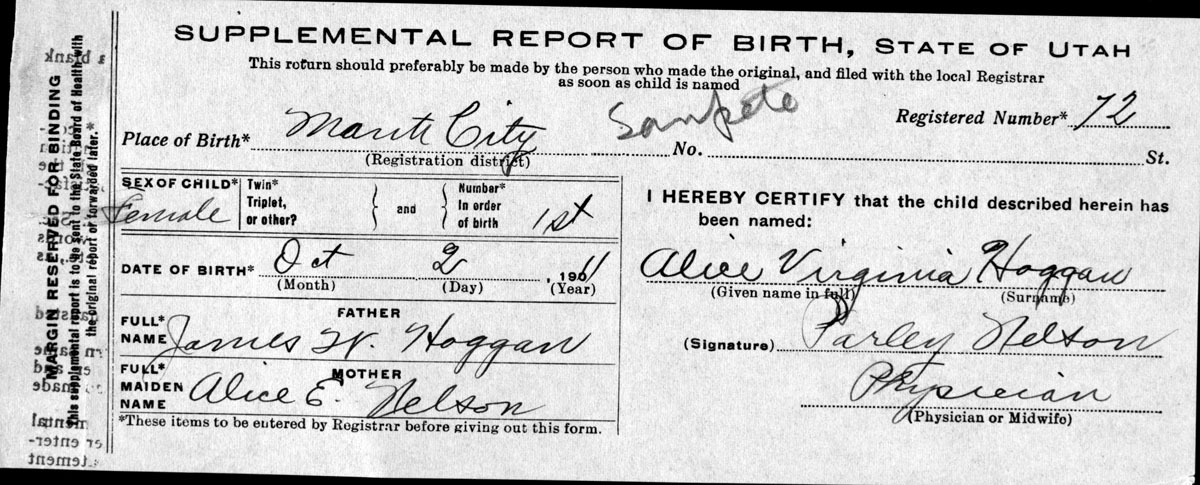 SUPPLEMENTAL REPORT OF BIRTH, STATE OF UTAH
This return should preferably be made by the person who made the original, and filed with the local Registrar
as soon as child is named
Sanpete
Registered Number* 72
Place of Birth* Manti City No. St.
(Registration district)
SEX OF CHILD* Female Twin* Triplet, or other? } and { Number* in order of birth 1st
DATE OF BIRTH* Oct 2, 1911
(Month) (Day) (Year)
FATHER
FULL* NAME James W. Hoggan
MOTHER
FULL* MAIDEN NAME Alice E. Nelson
*These items to be entered by Registrar before giving out this form.
I HEREBY CERTIFY that the child described herein has
been named:
Alice Virginia Hoggan
(Given name in full) (Surname)
(Signature) Parley Nelson
Physician
(Physician or Midwife)
MARGIN RESERVED FOR BINDING
This supplemental report is to be sent to the State Board of Health with
the original report or forwarded later.*